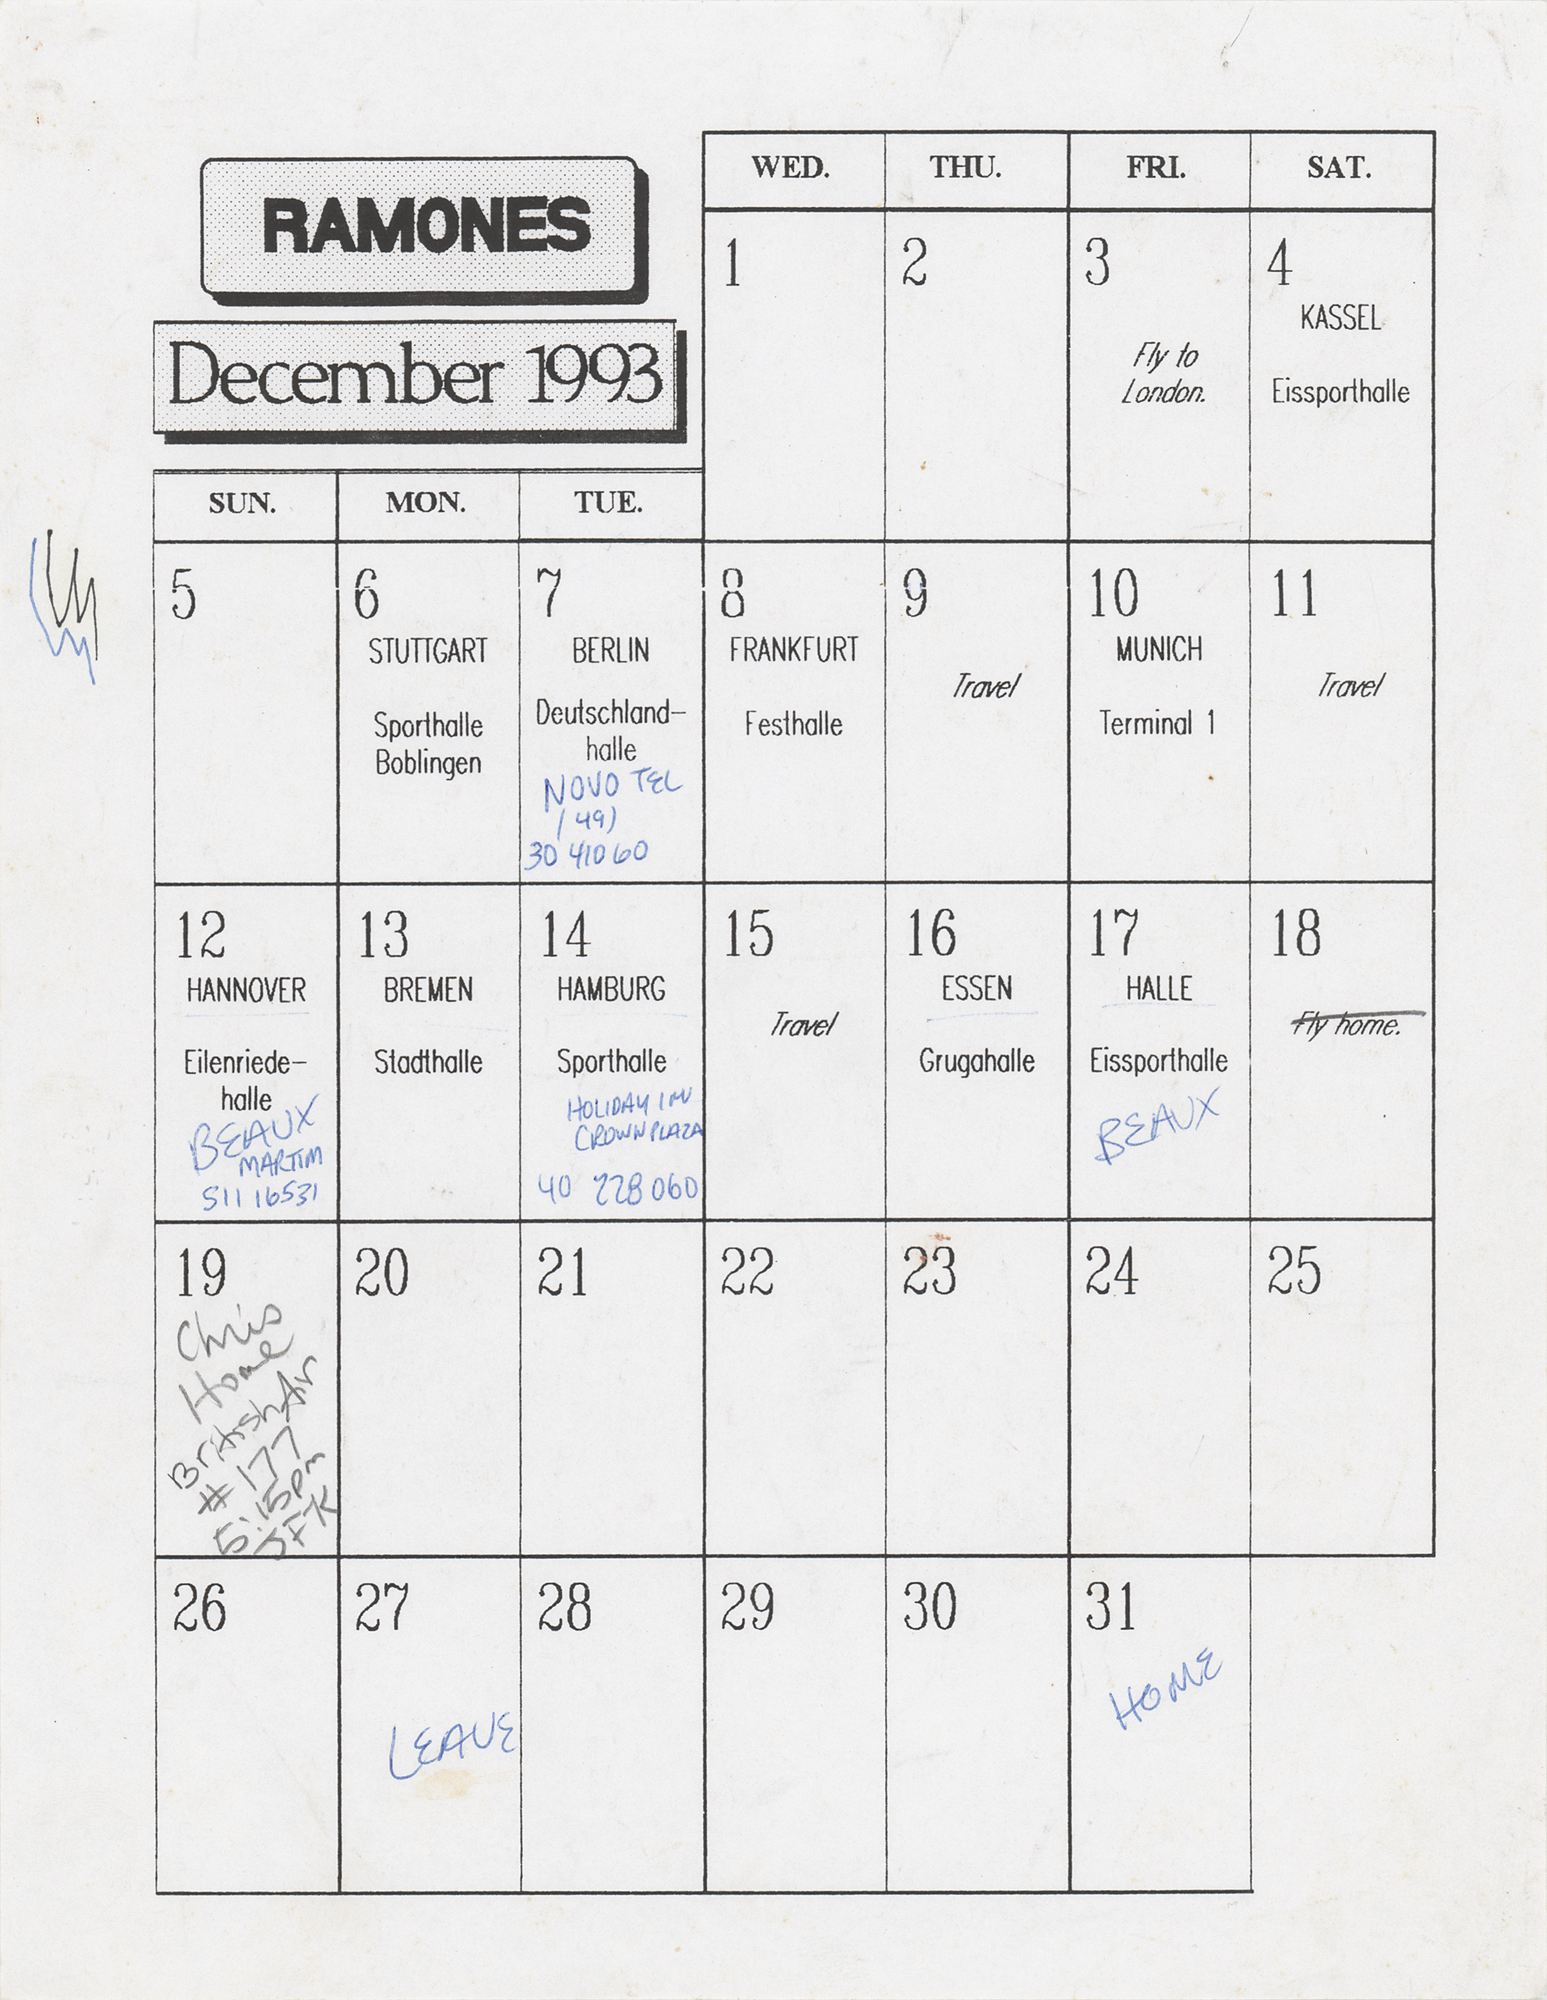 RAMONES
December 1993
WED. THU. FRI. SAT.
1
2
3
Fly to
London.
4
KASSEL
Eissporthalle
SUN. MON. TUE.
5
6
STUTTGART
Sporthalle
Boblingen
7
BERLIN
Deutschland-
halle
NOVO TEL
(49)
30 41060
8
FRANKFURT
Festhalle
9
Travel
10
MUNICH
Terminal 1
11
Travel
12
HANNOVER
Eilenriede-
halle
BEAUX
MARTIM
511 16531
13
BREMEN
Stadthalle
14
HAMBURG
Sporthalle
HOLIDAY INN
CROWN PLAZA
40 228 060
15
Travel
16
ESSEN
Grugahalle
17
HALLE
Eissporthalle
BEAUX
18
Fly home.
19
Chris
Home
British Air
#177
5:15pm
JFK
20
21
22
23
24
25
26
27
LEAVE
28
29
30
31
HOME